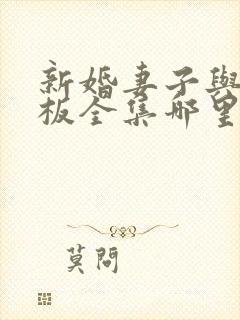 新婚妻子與
板全集哪里
莫問